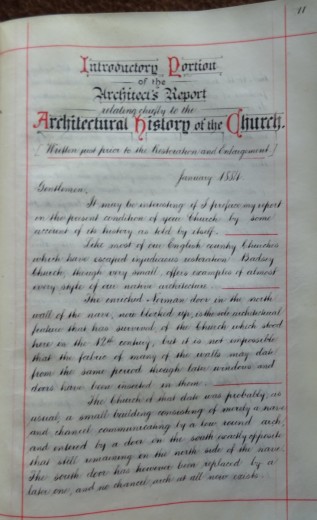 11
Introductory Portion
of the
Architect's Report
relating chiefly to the
Architectural History of the Church.
[Written just prior to the Restoration and Enlargement.]
January 1884
Gentlemen,
It may be interesting if I preface my report
on the present condition of your Church by some
account of its history as told by itself.
Like most of our English country Churches
which have escaped injudicious restoration Badsey
Church, though very small, offers examples of almost
every style of our native architecture.
The enriched Norman door in the north
wall of the nave, now blocked up, is the sole architectural
feature that has survived, of the Church which stood
here in the 12th century, but it is not impossible
that the fabric of many of the walls may date
from the same period though later windows and
doors have been inserted in them.
The Church of that date was probably, as
usual, a small building consisting of merely a nave
and chancel communicating by a low round arch,
and entered by a door on the south exactly opposite
that still remaining on the north side of the nave.
The south door has however been replaced by a
later one, and no chancel arch at all now exists.